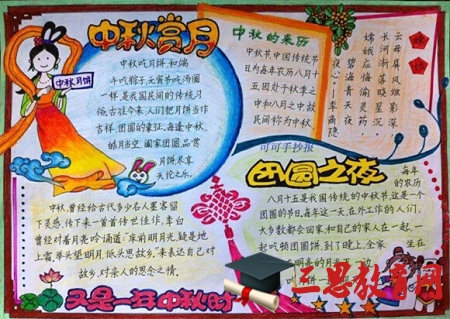 中秋赏月
中秋月饼
中秋吃月饼,和端
午吃粽子,元宵节吃汤圆
一样,是我国民间的传统习
俗。古往今来,人们把月饼当作
吉祥、团圆的象征。每逢中秋,
皓月当空,阖家团圆,品尝
月饼尽享
天伦之乐。
中秋的来历
中秋节,中国传统节
日为每年农历八月十
五因处于秋季之
中和八月之中,故
民间称为中秋
云母屏风烛影深
长河渐落晓星沉
嫦娥应悔偷灵药
碧海青天
夜心。——李商隐
可可手抄报
团圆之夜
每年
的农历
八月十五是我国传统的中秋节,这是一个
团圆的节日,每年这一天,在外工作的人们,
大多数都会回家,和自己的家人在一起,一
起吃顿团圆饼,到了晚上,全家
坐在
中秋,曾经给古代多少名人墨客留
下灵感,传下来一首首传世佳作,李白
曾经对着月亮吟诵道:“床前明月光,疑是地
上霜,举头望明月,低头思故乡。”来表达自己对
故乡,对亲人的思念之情。
又是一年中秋时
三思教育网